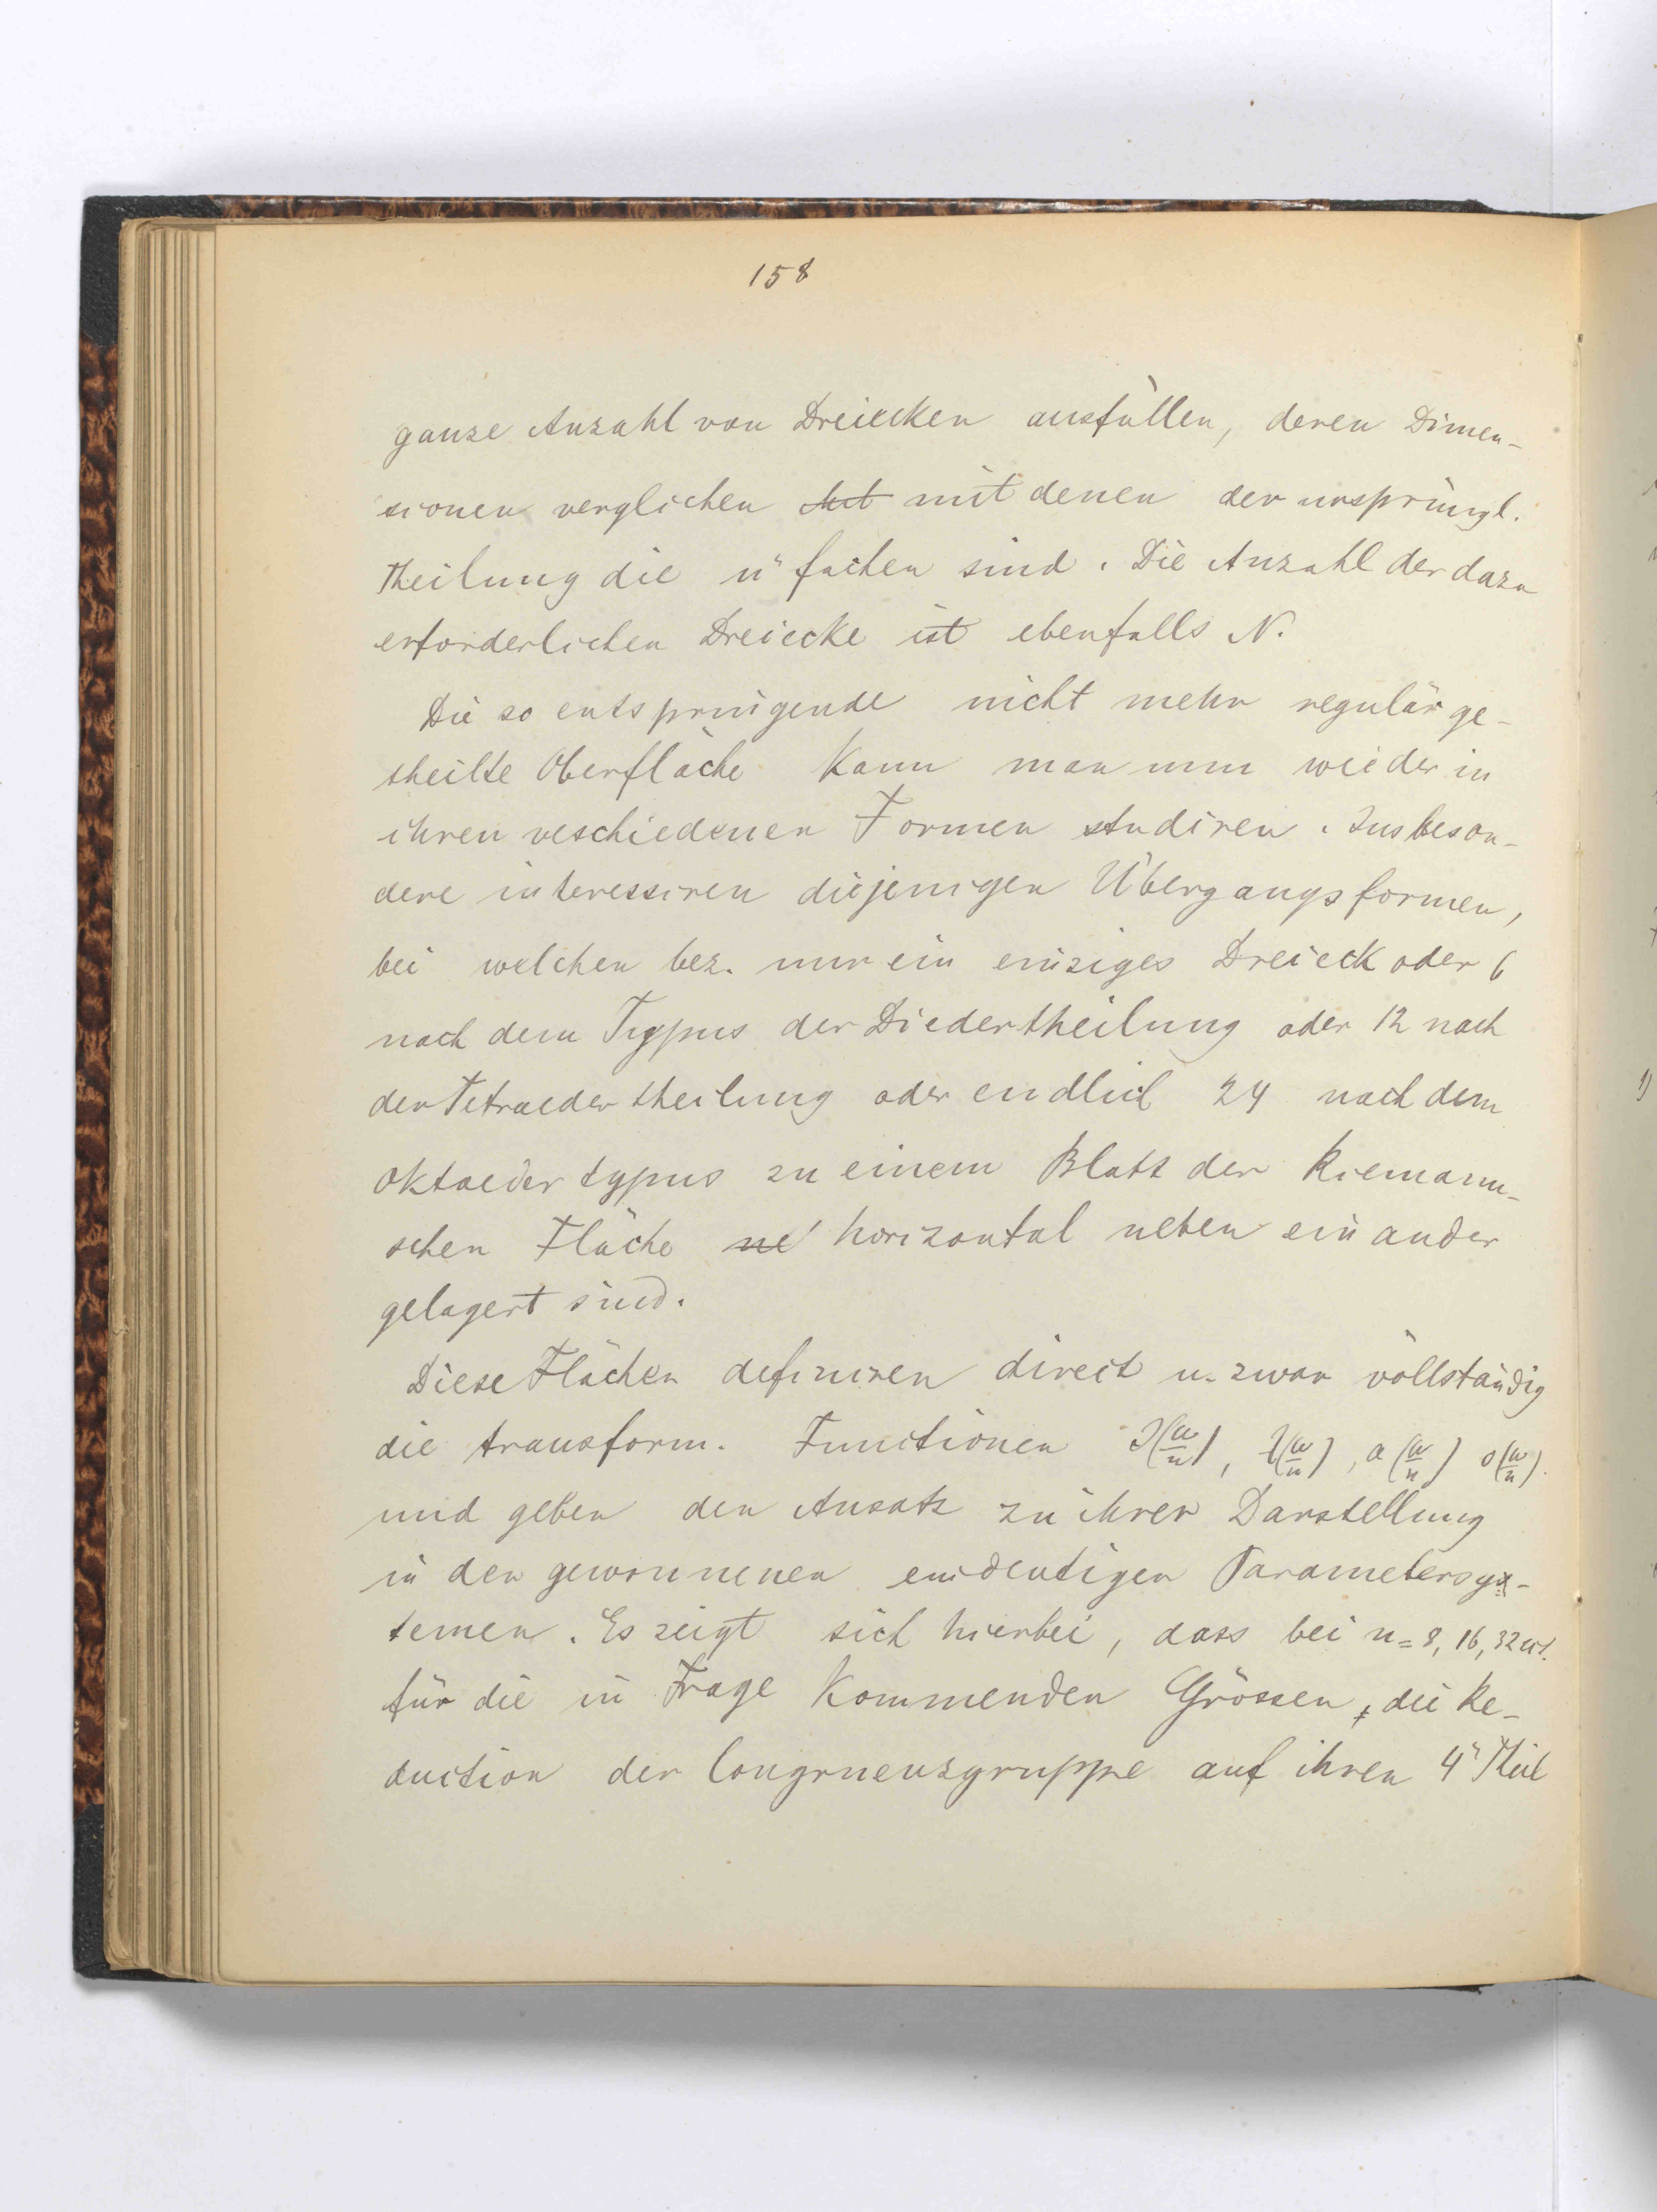 158
ganze Anzahl von Dreiecken ausfüllen, deren Dimen-
sionen verglichen mit denen der ursprüngl.
Theilung die n" fachen sind. Die Anzahl der dazu
erforderlichen Dreiecke ist ebenfalls N.
Die so entspringende nicht mehr regulär ge-
theilte Oberfläche kann man nun wieder in
ihren veschiedenen Formen studiren. Insbeson-
dere interessiren diejenigen Übergangsformen,
bei welchen bez. nur ein einziges Dreieck oder 6
nach dem Typus der Diedertheilung oder 12 nach
der Tetraedertheilung oder endlich 24 nach dem
Oktaedertypus zu einem Blatt der Riemann-
schen Fläche horizontal neben einander
gelagert sind.
Diese Flächen definiren direct u. zwar vollständig
die transform. Functionen J(ω/n), λ(ω/n), a(ω/n) o(ω/n).
und geben den Ansatz zu ihrer Darstellung
in den gewonnenen eindeutigen Parametersys-
temen. Es zeigt sich hierbei, dass bei n = 8, 16, 32
für die in Frage kommenden Grössen, die Re-
duction der Congruenzgruppe auf ihren 4" Theil